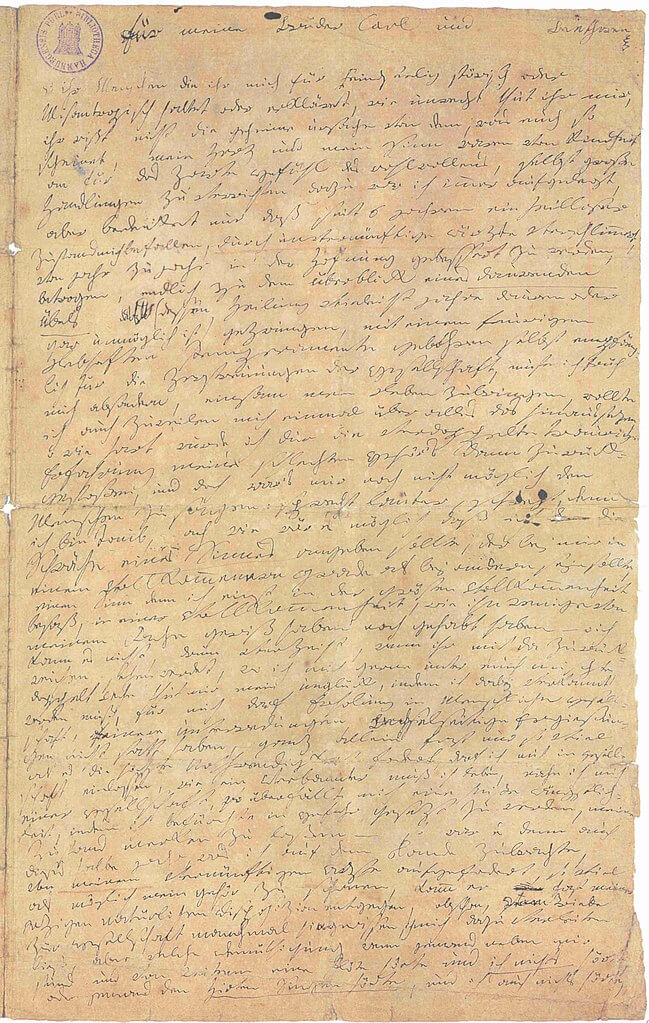 HAMBURGENSIS PUBL. BIBLIOTHECA
für meine Brüder Carl und Beethowen
o ihr Menschen die ihr mich für Feindseelig störisch oder
Misantropisch haltet oder erkläret, wie unrecht thut ihr mir,
ihr wißt nicht die geheime urßache von dem, was euch so
scheinet, mein Herz und mein Sinn waren von Kindheit
an für das Zarte Gefühl des wohlwollens, selbst große
Handlungen zu verrichten dazu war ich immer aufgelegt,
aber bedenket nur daß seit 6 jahren ein heilloser
Zustand mich befallen, durch unvernünftige ärzte verschlimmert,
von jahr zu jahr in der Hofnung gebessert zu werden,
betrogen, endlich zu dem überblick eines daurenden
Übels (dessen Heilung vieleicht jahre dauren oder
gar unmöglich ist) gezwungen, mit einem feurigen
Lebhaften Temperamente gebohren selbst empfäng-
lich für die Zerstreuungen der Gesellschaft, muste ich früh
mich absondern, einsam mein Leben zubringen, wollte
ich auch zuweilen mich einmal über alles das hinaussezen,
o wie hart wurde ich dur die verdoppelte traurige
Erfahrung meines schlechten Gehör's dann zurück-
gestoßen, und doch war's mir noch nicht möglich den
Menschen zu sagen: sprecht lauter, schreyt, denn
ich bin taub, ach wie wär es möglich daß ich die
Schwäche eines Sinnes angeben sollte, der bey mir in
einem Vollkommenern Grade als bey andern seyn sollte,
einen Sinn den ich einst in der grösten Vollkommenheit
besaß, in einer Vollkommenheit, wie ihn wenige von
meinem Fache gewiß haben noch gehabt haben – o ich
kann es nicht, drum verzeiht, wenn ihr mich da zurück-
weichen sehen werdet, wo ich mich gerne unter euch mischte,
doppelt Wehe thut mir mein unglück, indem ich dabey verkannt
werden muß, für mich darf Erholung in Menschlicher Gesell-
schaft, feinere unterredungen, Wechselseitige Ergießun-
gen nicht statt haben, ganz allein fast nur so viel
als es die höchste Nothwendigkeit fodert, darf ich mich in gesell-
schaft einlassen, wie ein Verbannter muß ich leben, nahe ich mich
einer Gesellschaft, so überfällt mich eine heiße ängstlich-
keit, indem ich befürchte in Gefahr gesezt zu werden, meinen
Zustand merken zu laßen – so war es denn auch
dieses halbe jahr, was ich auf dem Lande zubrachte,
von meinem vernünftigen Arzte aufgefodert, so viel
als möglich mein Gehör zu schonen, kamm er fast meiner
jezigen natürlichen Disposizion entgegen, obschon, vom Triebe
zur Gesellschaft manchmal hingerissen, ich mich dazu verleiten
ließ, aber welche Demüthigung wenn jemand neben mir
stund und von weitem eine flöte hörte und ich nichts hörte,
oder jemand den Hirten Singen hörte, und ich auch nichts hörte,